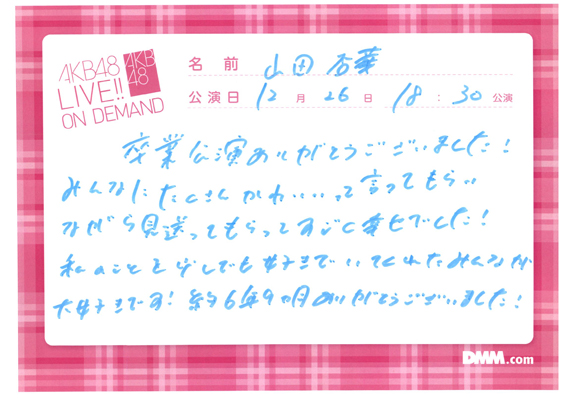 AKB48
LIVE!!
ON DEMAND
AKB
48
名前 山田杏華
公演日 12月26日 18:30公演
卒業公演ありがとうございました!
みんなにたくさんかわいいって言ってもらい
ながら見送ってもらってすごく幸せでした!
私のことを少しでも好きでいてくれたみんなが
大好きです!約6年9ヶ月ありがとうございました!
DMM.com